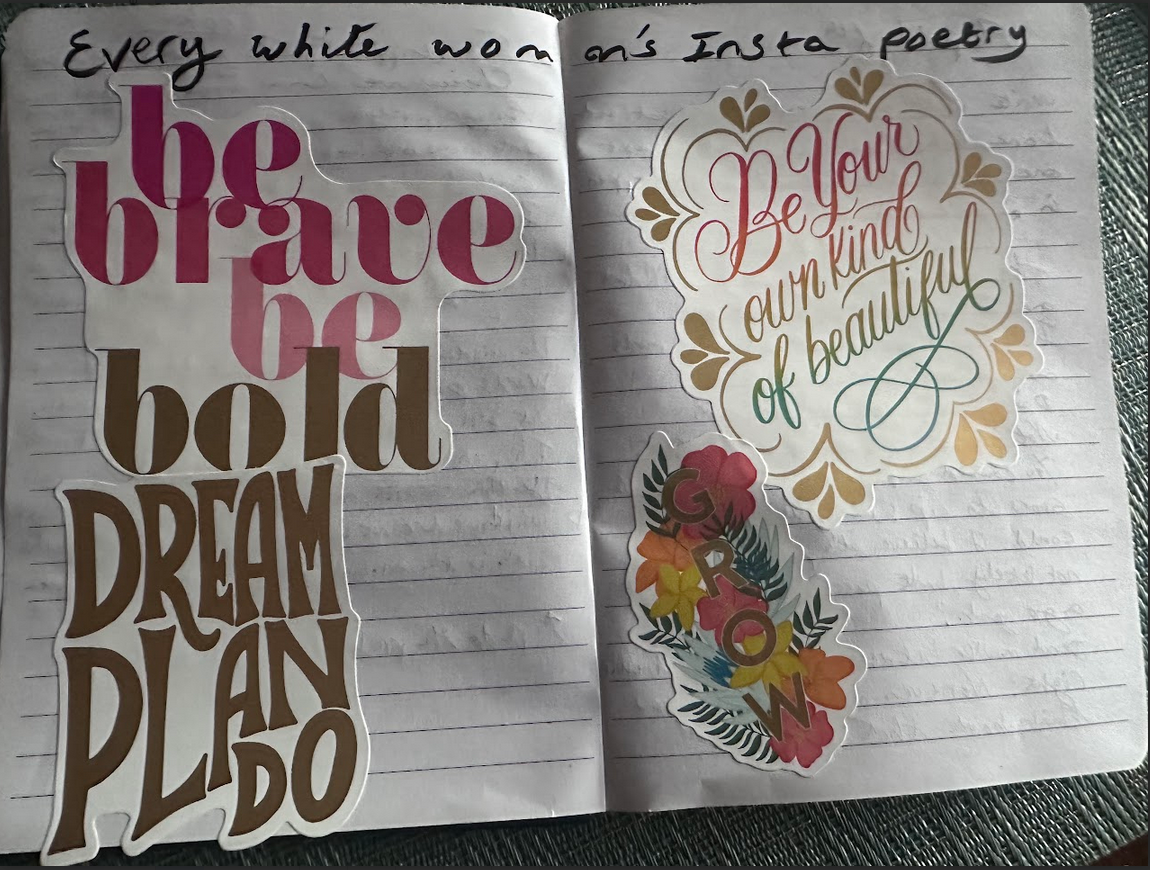 Every white woman's Insta poetry
be
brave
be
bold
DREAM
PLAN
DO
Be Your
own kind
of beautiful
GROW